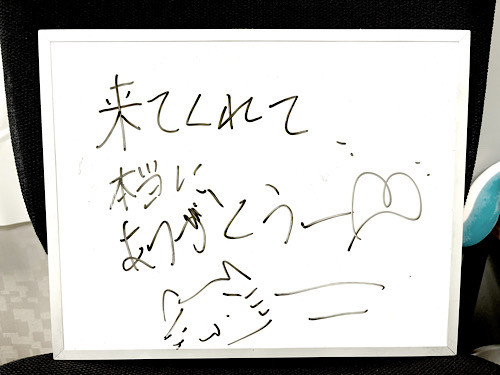 来てくれて
本当に
ありがとうー